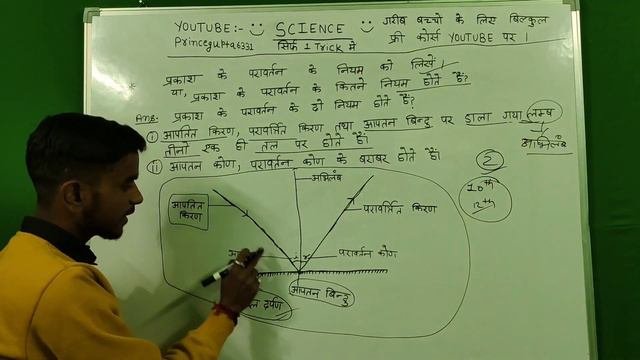 YOUTUBE:- SCIENCE गरीब बच्चो के लिए बिल्कुल
Princegupta6331 सिर्फ 1 Trick मे फ्री कोर्स YOUTUBE पर ।
* प्रकाश के परावर्तन के नियम को लिखें?
या, प्रकाश के परावर्तन के कितने नियम होते हैं?
Ans: प्रकाश के परावर्तन के दो नियम होते हैं?
(i) आपतित किरण, परावर्तित किरण तथा आपतन बिन्दु पर डाला गया लम्ब
तीनों एक ही तल पर होते हैं।
अभिलंब
(ii) आपतन कोण, परावर्तन कोण के बराबर होते हैं।
2
10th
12th
अभिलंब
आपतित
किरण
परावर्तित किरण
i r
परावर्तन कोण
आपतन बिन्दु
दर्पण